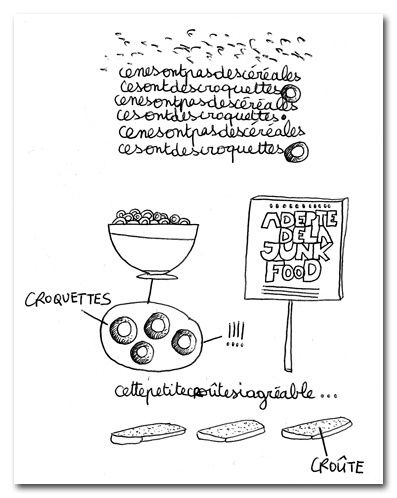 cenesontpasdescéréales
cesontdescroquettes
cenesontpasdescéréales
cesontdescroquettes.
cenesontpasdescéréales
cesontdescroquettes
ADEPTE
DE LA
JUNK
FOOD
CROQUETTES
!!!!
cettepetitecroûtesiagréable...
CROÛTE